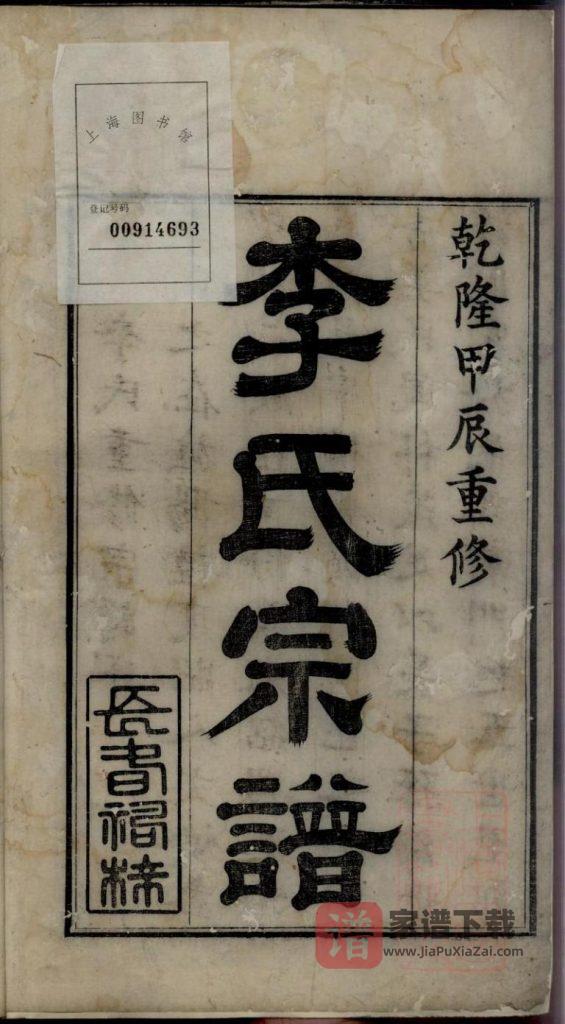 上海图书馆
登记号码
00914693
乾隆甲辰重修
李氏宗譜
家谱下载
www.JiaPuXiaZai.com
谱